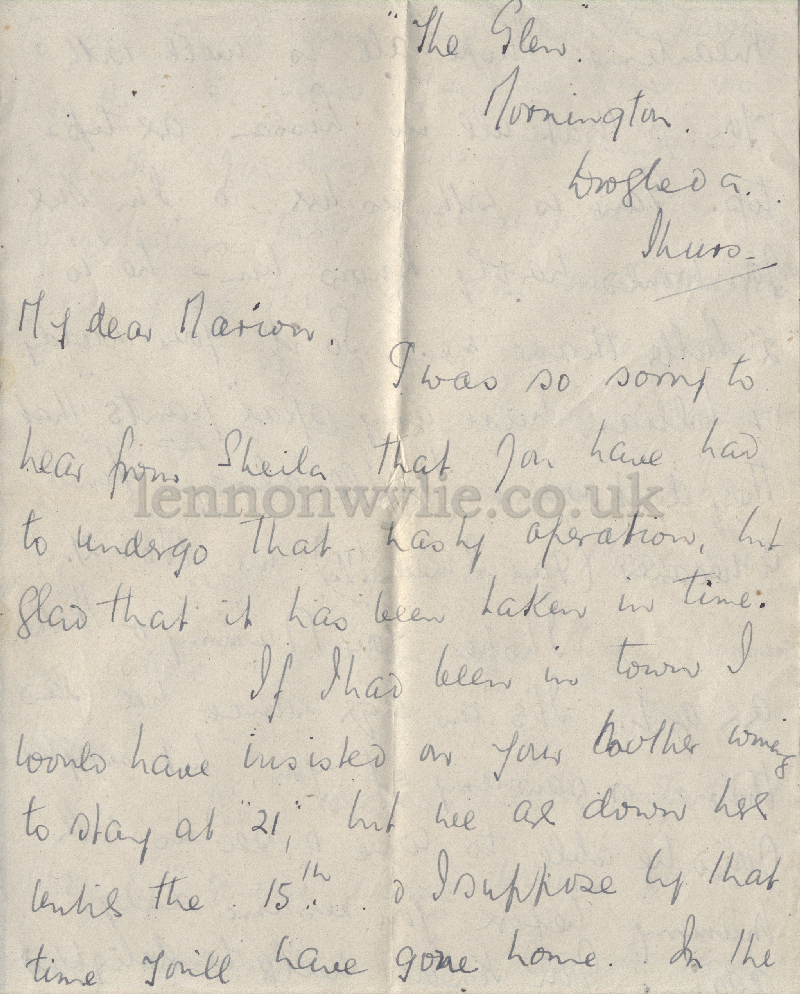 "The Glen".
Mornington.
Drogheda.
Thurs-
My dear Marion.
I was so sorry to
hear from Sheila that you have had
to undergo that nasty operation, but
glad that it has been taken in time.
If I had been in town I
would have insisted on your Mother coming
to stay at "21", but we are down here
until the 15th. & I suppose by that
time you'll have gone home. In the
lennonwylie.co.uk